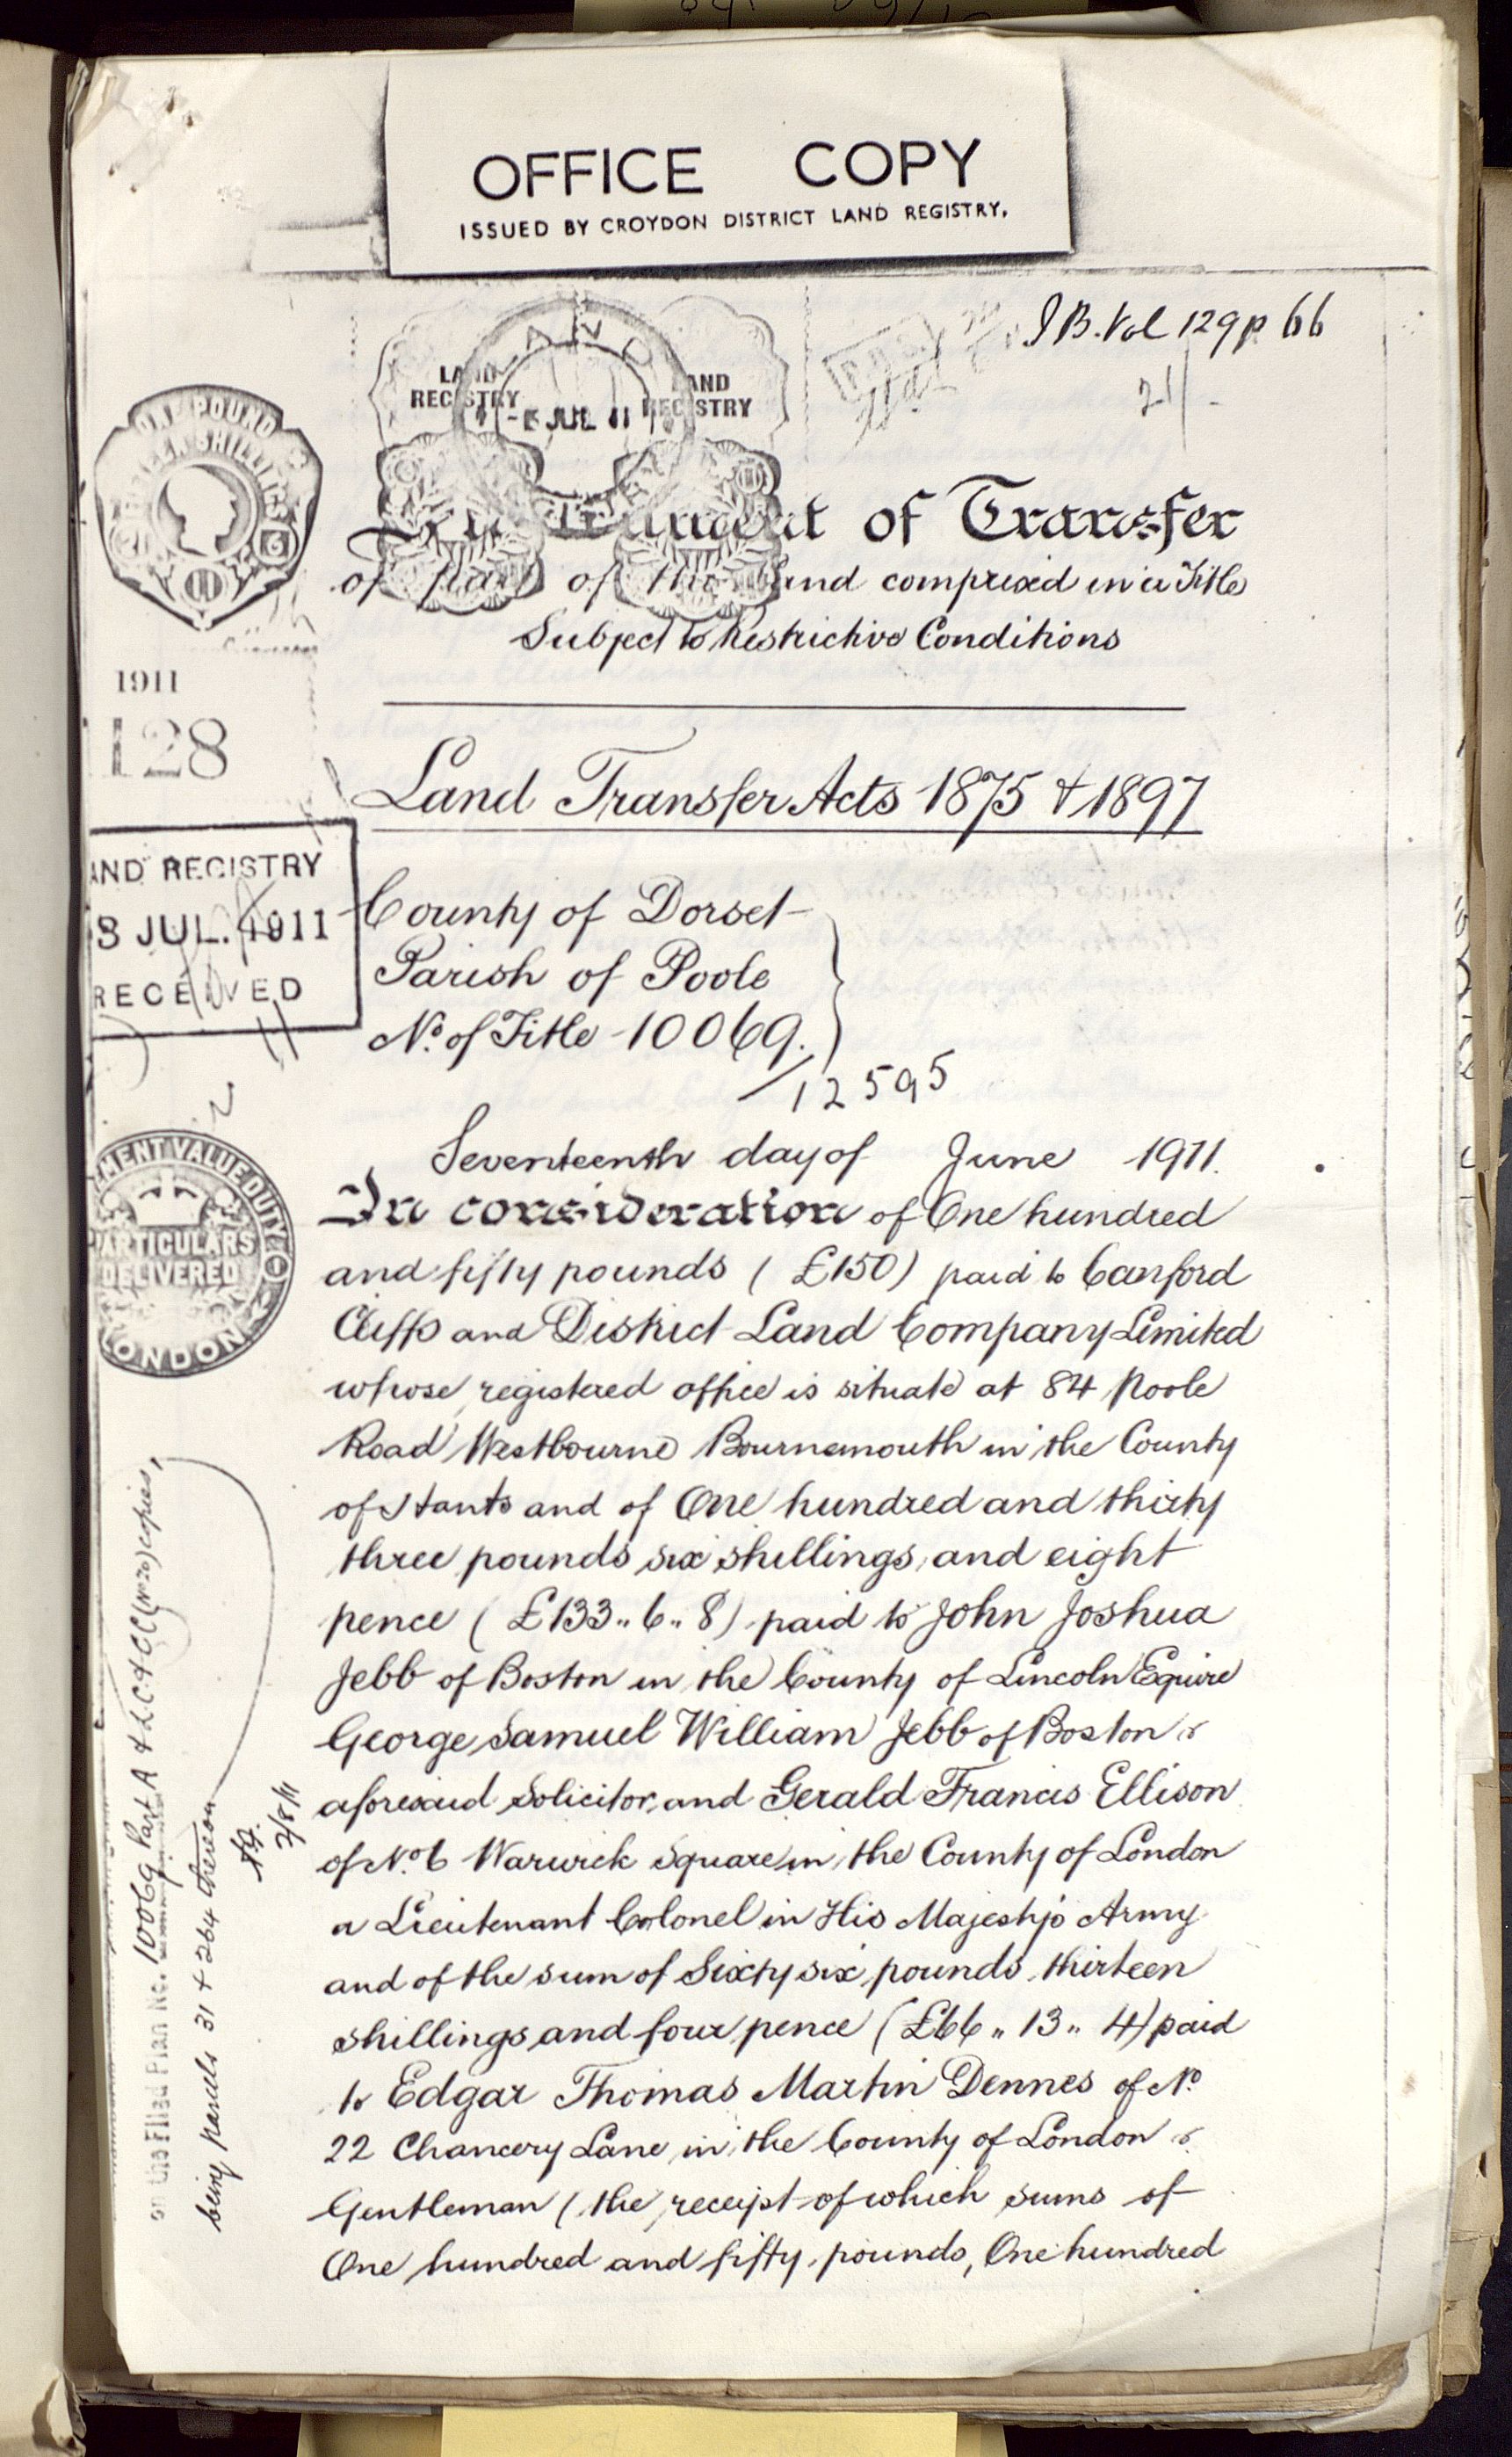 OFFICE COPY
ISSUED BY CROYDON DISTRICT LAND REGISTRY.
I B. Vol 129 p 66
21/-
LAND
REGISTRY
LAND
REGISTRY
LAND
JUL 11
ONE POUND
FIFTEEN SHILLINGS
1911
128
Instrument of Transfer
of part of the land comprised in a Title
Subject to Restrictive Conditions
Land Transfer Acts 1875 & 1897
AND REGISTRY
8 JUL. 1911
RECEIVED
County of Dorset
Parish of Poole
No. of Title 10069.
/12595
EMENT VALUE DUTY
PARTICULARS
DELIVERED
LONDON
Seventeenth day of June 1911.
In consideration of One hundred
and fifty pounds ( £150) paid to Canford
Cliffs and District Land Company Limited
whose registered office is situate at 84 Poole
Road Westbourne Bournemouth in the County
of Hants and of One hundred and thirty
three pounds six shillings and eight
pence ( £133 „ 6 „ 8) paid to John Joshua
Jebb of Boston in the County of Lincoln Esquire
George Samuel William Jebb of Boston
aforesaid Solicitor and Gerald Francis Ellison
of No. 6 Warwick Square in the County of London
a Lieutenant Colonel in His Majesty's Army
and of the sum of Sixty six pounds thirteen
shillings and four pence (£66 „ 13 „ 4) paid
to Edgar Thomas Martin Dennes of No
22 Chancery Lane in the County of London
Gentleman ( the receipt of which sums of
One hundred and fifty pounds, One hundred
on the Filed Plan No. 10069 Part A & L.C. & C.C. copies,
being parcels 31 + 264 thereon
2/8/11